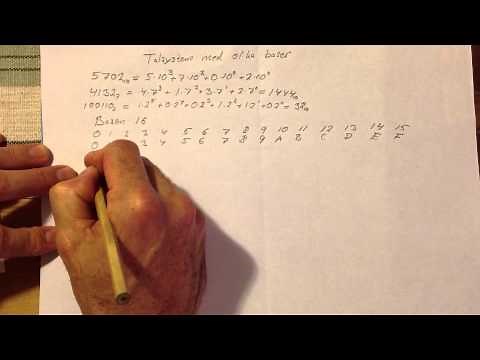 Talsystem med olika baser
5702₁₀ = 5·10³+7·10²+0·10¹+2·10⁰
4132₇ = 4·7³+1·7²+3·7¹+2·7⁰ = 1444₁₀
100110₂ = 1·2⁵+0·2⁴+0·2³+1·2²+1·2¹+0·2⁰ = 38₁₀
Basen 16
0 1 2 3 4 5 6 7 8 9 10 11 12 13 14 15
0 3 4 5 6 7 8 9 A B C D E F